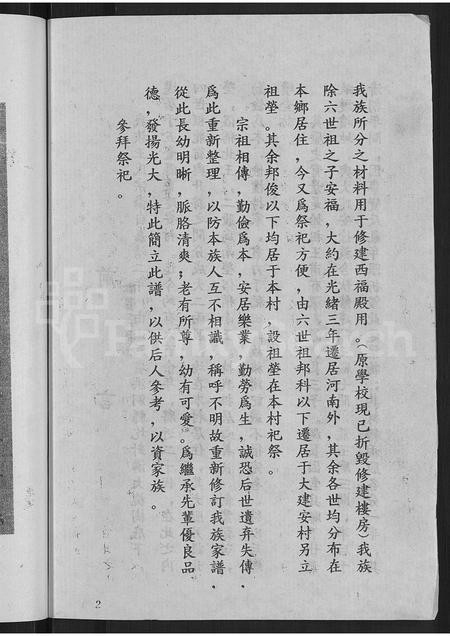 我族所分之材料用于修建西福殿用。(原學校現已折毀修建樓房)我族
除六世祖之子安福,大約在光緒三年遷居河南外,其余各世均分布在
本鄉居住,今又爲祭祀方便,由六世祖邦科以下遷居于大建安村另立
祖塋。其余邦俊以下均居于本村,設祖塋在本村祀祭。
宗祖相傳,勤儉爲本,安居樂業,勤勞爲生,誠恐后世遺弃失傳.
爲此重新整理,以防本族人互不相識,稱呼不明故重新修訂我族家譜.
從此長幼明晰,脈胳清爽;老有所尊,幼有可愛。爲繼承先輩優良品
德,發揚光大,特此簡立此譜,以供后人參考,以資家族。
參拜祭祀。
2